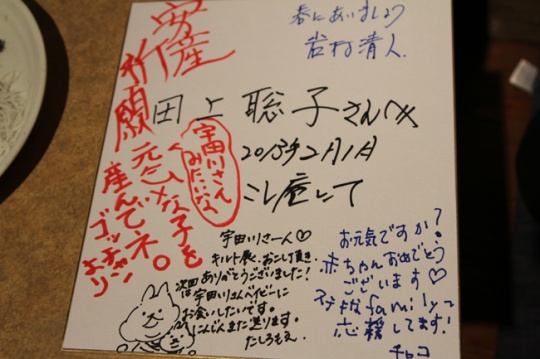 安産
祈願
元気な子を
産んでネ。
ゴッチャン
より
宇田川さん
みたいな
春にあいましょう
岩村清人.
田上聡子さんへ
2013年2月1日
こし庵にて
宇田川さーん♡
キルト展、おこし頂き、
ありがとうございました!
次回は宇田川さんベイビーに
お会いしたいです。
にんじんまた送ります。
たしろもえ.
お元気ですか?
赤ちゃんおめでとう
ございます♡
ステキなfamilyを
応援してます!
チャコ